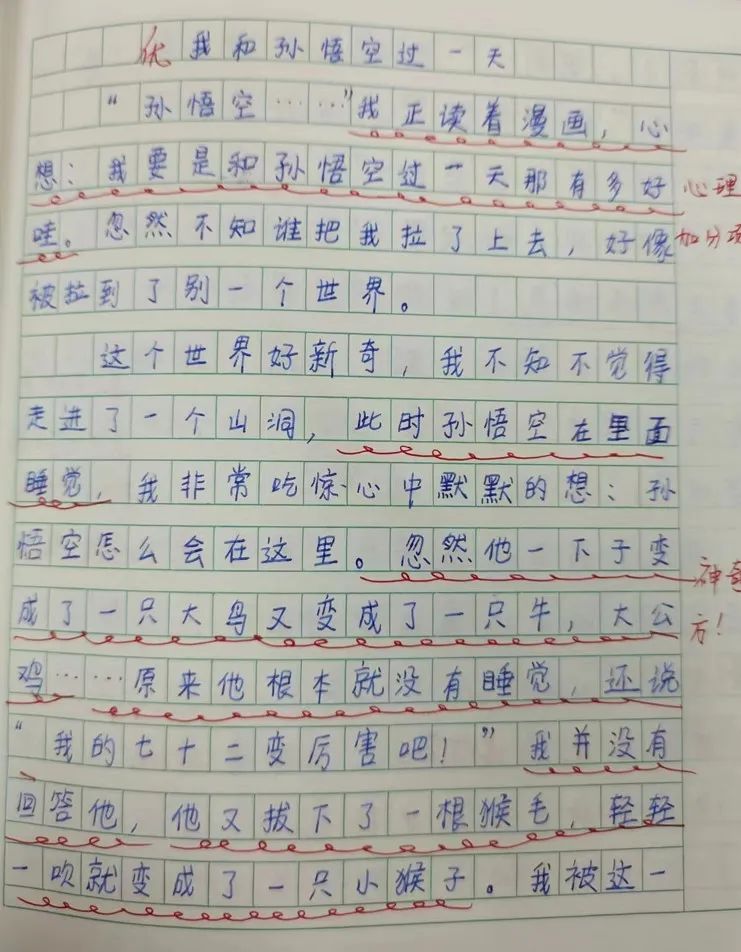 优 我和孙悟空过一天
“孙悟空……”我正读着漫画，心
想：我要是和孙悟空过一天那有多好 心理
哇。忽然不知谁把我拉了上去，好像 加分项
被拉到了别一个世界。
这个世界好新奇，我不知不觉得
走进了一个山洞，此时孙悟空在里面
睡觉，我非常吃惊心中默默的想：孙
悟空怎么会在这里。忽然他一下子变 神奇
成了一只大鸟又变成了一只牛，大公 方！
鸡……原来他根本就没有睡觉，还说
“我的七十二变厉害吧！”我并没有
回答他，他又拔下了一根猴毛，轻轻
一吹就变成了一只小猴子。我被这一